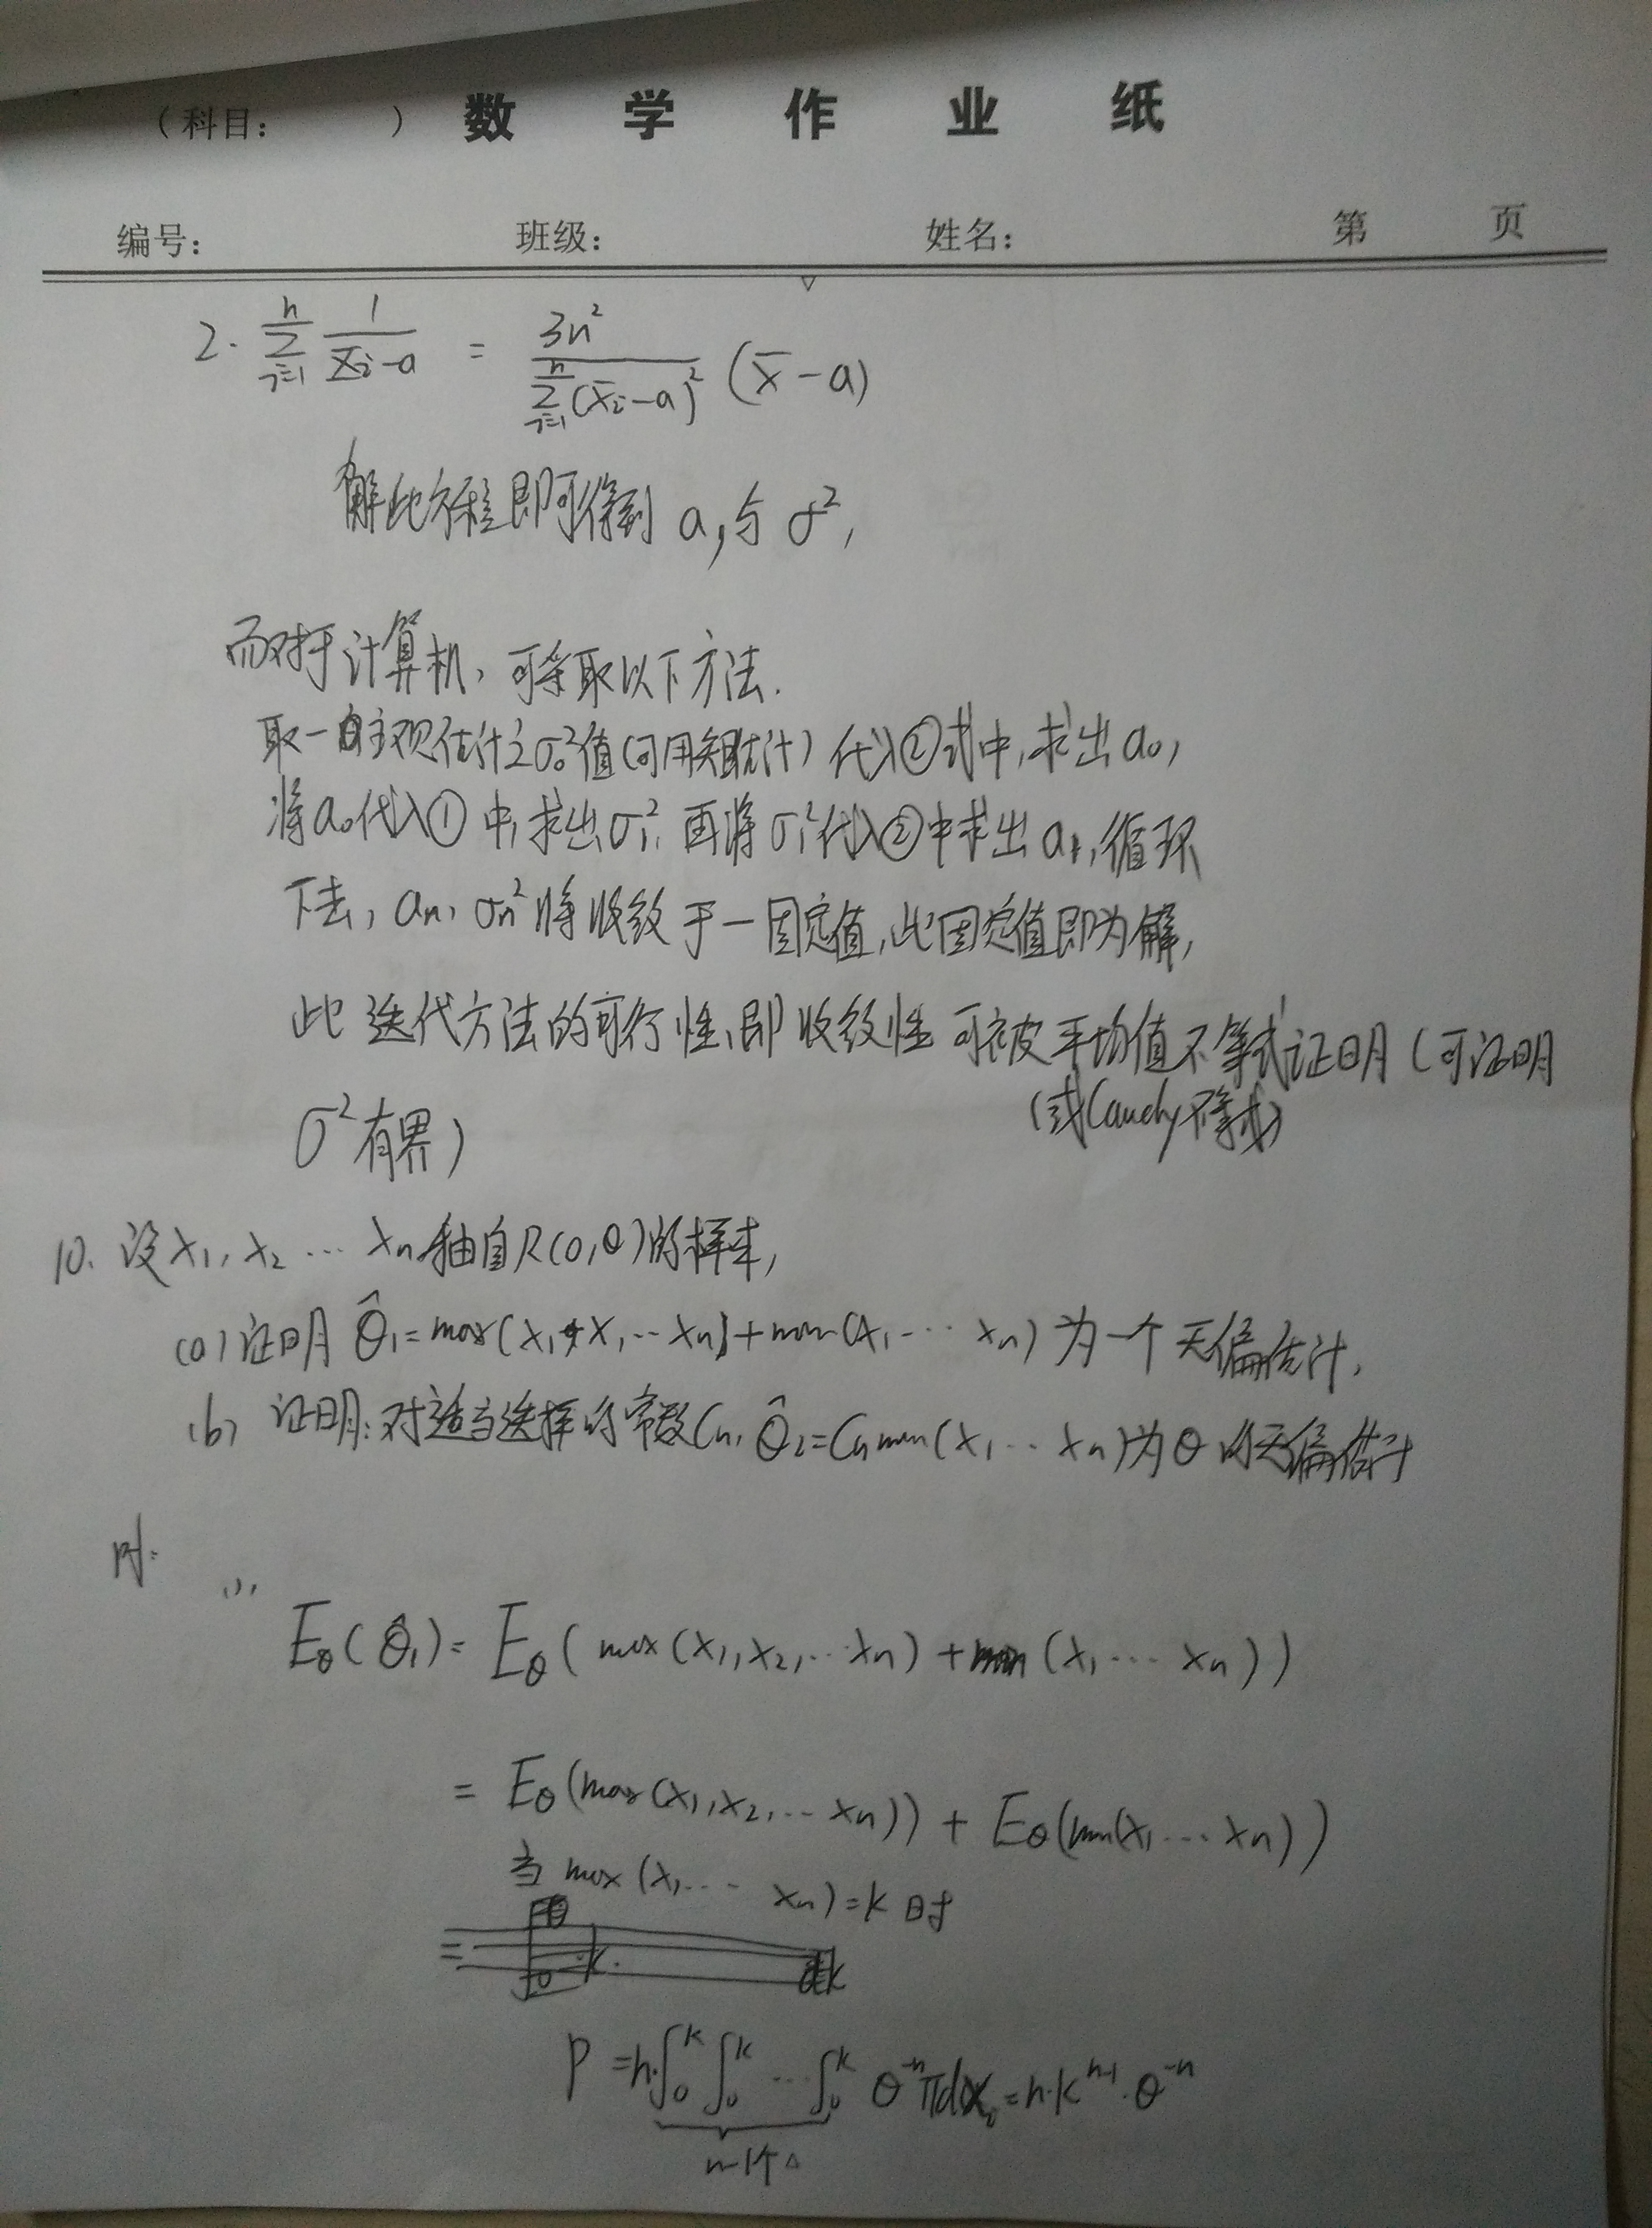 （科目： ） 数 学 作 业 纸
编号： 班级： 姓名： 第 页
2. \sum_{i=1}^{n} \frac{1}{x_i-a} = \frac{3n^2}{\sum_{i=1}^{n}(x_i-a)^2} (\bar{x}-a)
解此方程即可得到 a, 与 σ²,
而对于计算机, 可采取以下方法.
取一主观估计之σ₀²值(可用矩估计) 代入②式中, 求出a₀,
将a₀代入①中, 求出σ₁², 再将σ₁²代入②中求出a₁, 循环
下去, aₙ, σₙ²将收敛于一固定值, 此固定值即为解,
此迭代方法的可行性, 即收敛性可被平均值不等式证明 (可证明
(或Cauchy不等式)
σ²有界)
10. 设x₁, x₂ … xₙ抽自R(0,θ)的样本,
(a) 证明 \hat{θ}₁=max(x₁, … xₙ)+min(x₁ … xₙ) 为一个无偏估计.
(b) 证明: 对适当选择的常数Cₙ, \hat{θ}₂=Cₙmin(x₁ … xₙ)为θ的无偏估计
(1),
E_θ(\hat{θ}₁)= E_θ( max(x₁,x₂,… xₙ) + min(x₁ … xₙ))
= E_θ(max(x₁,x₂,… xₙ)) + E_θ(min(x₁ … xₙ))
当 max(x₁ … xₙ)=k 时
P =n·∫_0^k ∫_0^k … ∫_0^k θ^{-n} πdx_i = n·k^{n-1}·θ^{-n}
n-1个